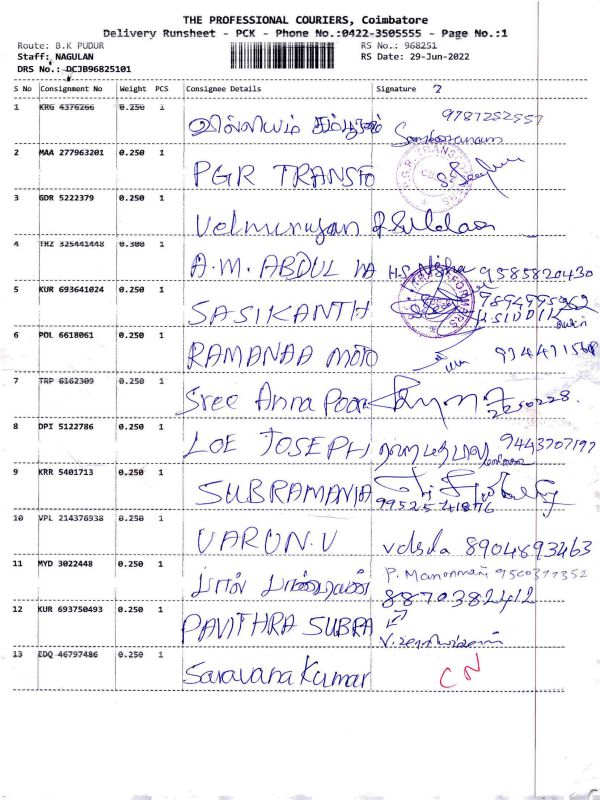 THE PROFESSIONAL COURIERS, Coimbatore
Delivery Runsheet - PCK - Phone No.:0422-3505555 - Page No.:1
Route: B.K PUDUR RS No.: 968251
Staff: NAGULAN RS Date: 29-Jun-2022
DRS No.: DCJB96825101
S No Consignment No Weight PCS Consignee Details Signature
1 KRG 4376266 0.250 1 9787252557
2 MAA 277963201 0.250 1 PGR TRANSFO
3 GDR 5222379 0.250 1 Velmurugan
4 TRZ 325441448 0.300 1 A.M. ABDUL HA H.S. Nisha 9585820430
5 KUR 693641024 0.250 1 SASIKANTH
6 POL 6618061 0.250 1 RAMANAA MOTO
7 TRP 6162309 0.250 1 Sree Anna Poor 2250228.
8 DPI 5122786 0.250 1 LOE JOSEPH 9443707197
9 KRR 5401713 0.250 1 SUBRAMANIA
9952541876
10 VPL 214376938 0.250 1 VARUN.V vdsda 8904893463
11 MYD 3022448 0.250 1 P. Manonmani 9500377352
8870382412
12 KUR 693750493 0.250 1 PAVITHRA SUBRA
13 EDQ 46797486 0.250 1 Saravana Kumar CN